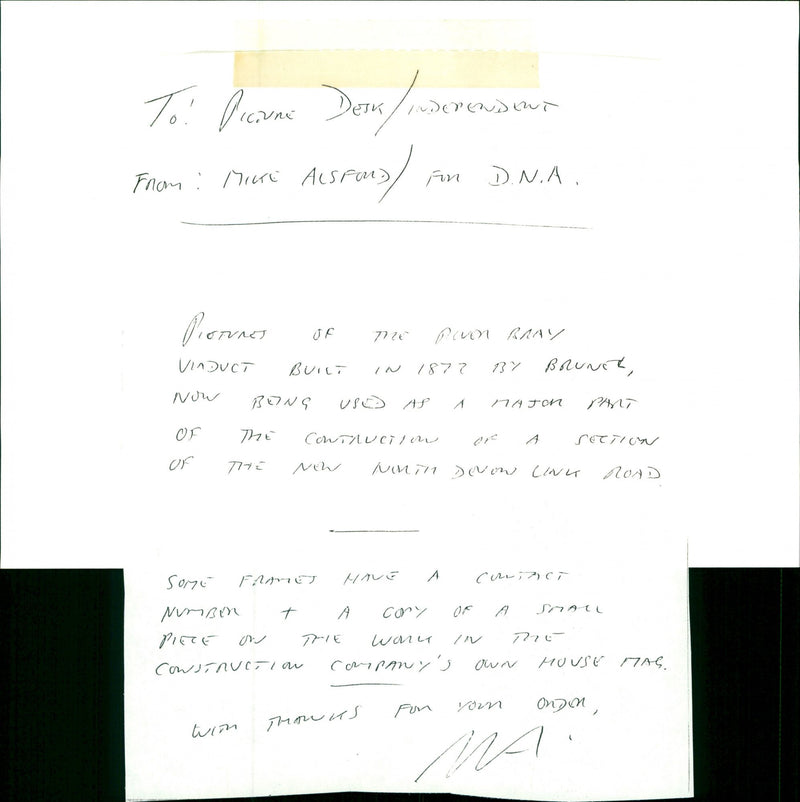 To: PICTURE DESK/INDEPENDENT
FROM: MIKE ALSFORD/ FOR D.N.A.
PICTURES OF THE RIVER BRAY
VIADUCT BUILT IN 1872 BY BRUNEL,
NOW BEING USED AS A MAJOR PART
OF THE CONTRUCTION OF A SECTION
OF THE NEW NORTH DEVON LINK ROAD
SOME FRAMES HAVE A CONTACT
NUMBER + A COPY OF A SMALL
PIECE ON THE WORK IN THE
CONSTRUCTION COMPANY'S OWN HOUSE MAG.
WITH THANKS FOR YOUR ORDER,
MA.